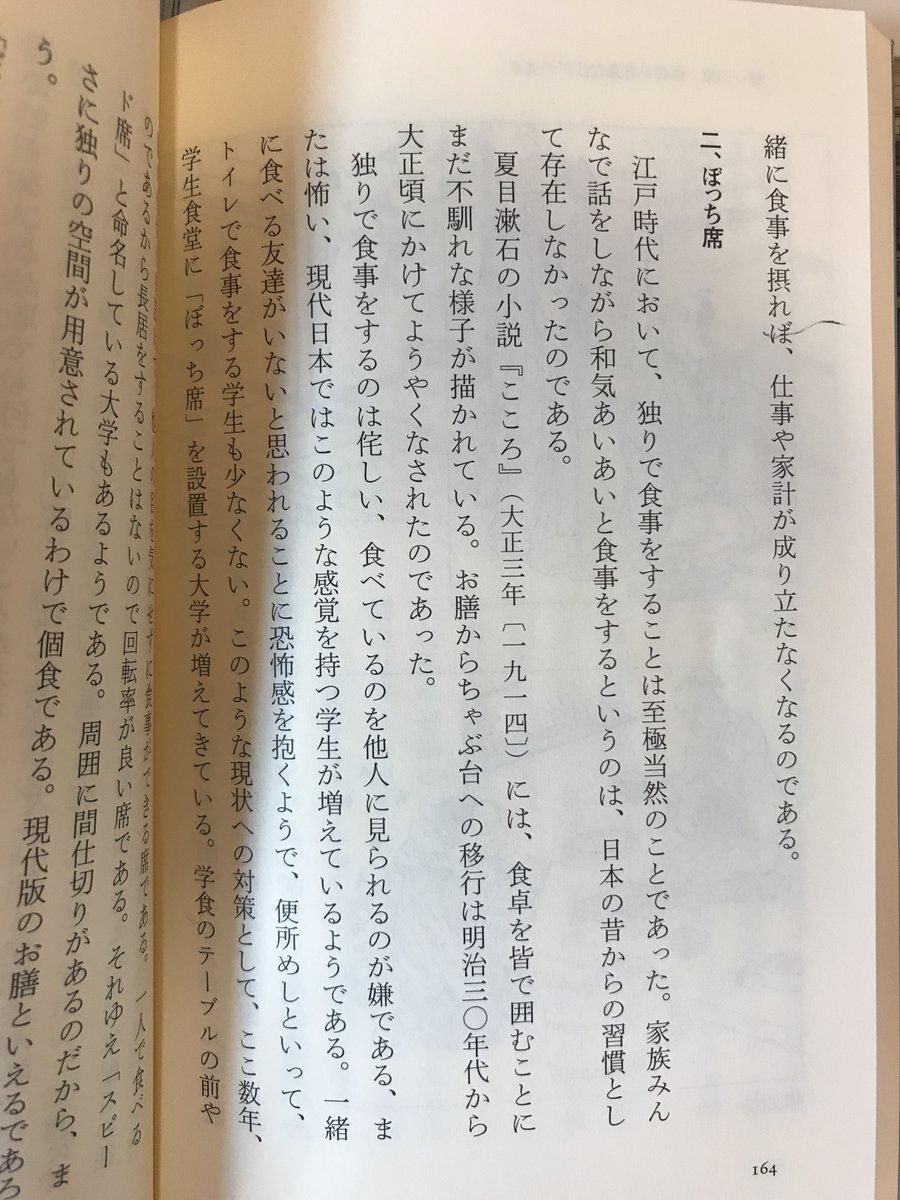 緒に食事を摂れば、仕事や家計が成り立たなくなるのである。
二、ぼっち席
江戸時代において、独りで食事をすることは至極当然のことであった。家族みん
なで話をしながら和気あいあいと食事をするというのは、日本の昔からの習慣とし
て存在しなかったのである。
夏目漱石の小説『こころ』(大正三年〔一九一四〕)には、食卓を皆で囲むことに
まだ不馴れな様子が描かれている。お膳からちゃぶ台への移行は明治三〇年代から
大正頃にかけてようやくなされたのであった。
独りで食事をするのは侘しい、食べているのを他人に見られるのが嫌である、ま
たは怖い、現代日本ではこのような感覚を持つ学生が増えているようである。一緒
に食べる友達がいないと思われることに恐怖感を抱くようで、便所めしといって、
トイレで食事をする学生も少なくない。このような現状への対策として、ここ数年、
学生食堂に「ぼっち席」を設置する大学が増えてきている。学食のテーブルの前や
の目を気にせずに食事ができる席である。一人で食べる
のであるから長居をすることはないので回転率が良い席である。それゆえ「スピー
ド席」と命名している大学もあるようである。周囲に間仕切りがあるのだから、ま
さに独りの空間が用意されているわけで個食である。現代版のお膳といえるであろ
う。
164